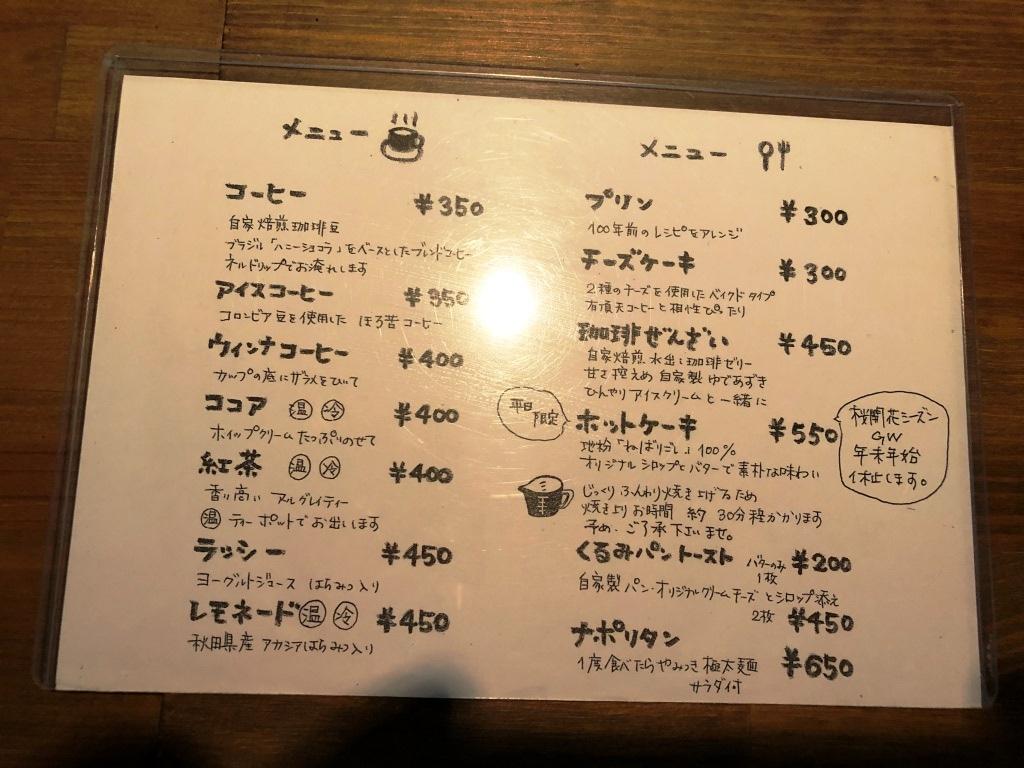 メニュー
コーヒー ¥350
自家焙煎珈琲豆
ブラジル「ハニーショコラ」をベースとしたブレンドコーヒー
ネルドリップでお淹れします
アイスコーヒー ¥350
コロンビア豆を使用した ほろ苦コーヒー
ウィンナコーヒー ¥400
カップの底にザラメをひいて
ココア 温 冷 ¥400
ホイップクリームたっぷりのせて
紅茶 温 冷 ¥400
香り高い アールグレイティー
温 ティーポットでお出います
ラッシー ¥450
ヨーグルトジュース はちみつ入り
レモネード 温 冷 ¥450
秋田県産 アカシアはちみつ入り
メニュー
プリン ¥300
100年前のレシピをアレンジ
チーズケーキ ¥300
2種のチーズを使用したベイクドタイプ
有頂天コーヒーと相性ぴったり
珈琲ぜんざい ¥450
自家焙煎水出し珈琲ゼリー
甘さ控えめ 自家製ゆであずき
ひんやりアイスクリームと一緒に
平日限定
ホットケーキ ¥550
地粉「ねばりごし」100%
オリジナルシロップとバターで素朴な味わい
じっくりふんわり焼き上げるため
焼き上りお時間 約30分程かかります
予め、ご了承下いませ。
桜開花シーズン
GW
年末年始
休止します。
くるみパントースト バターのみ 1枚 ¥200
自家製パン・オリジナルクリームチーズとシロップ添え
2枚 ¥450
ナポリタン ¥650
1度食べたらやみつき極太麺
サラダ付